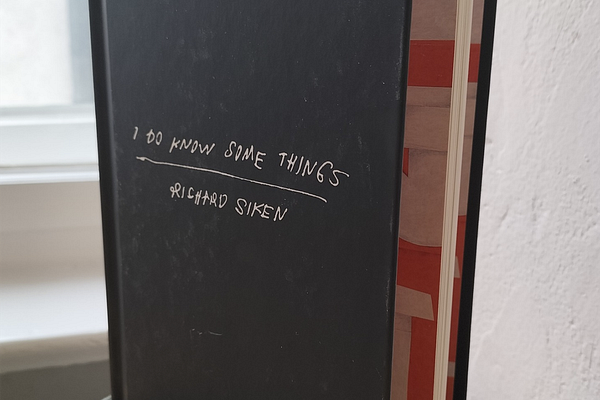 I DO KNOW SOME THINGS
RICHARD SIKEN